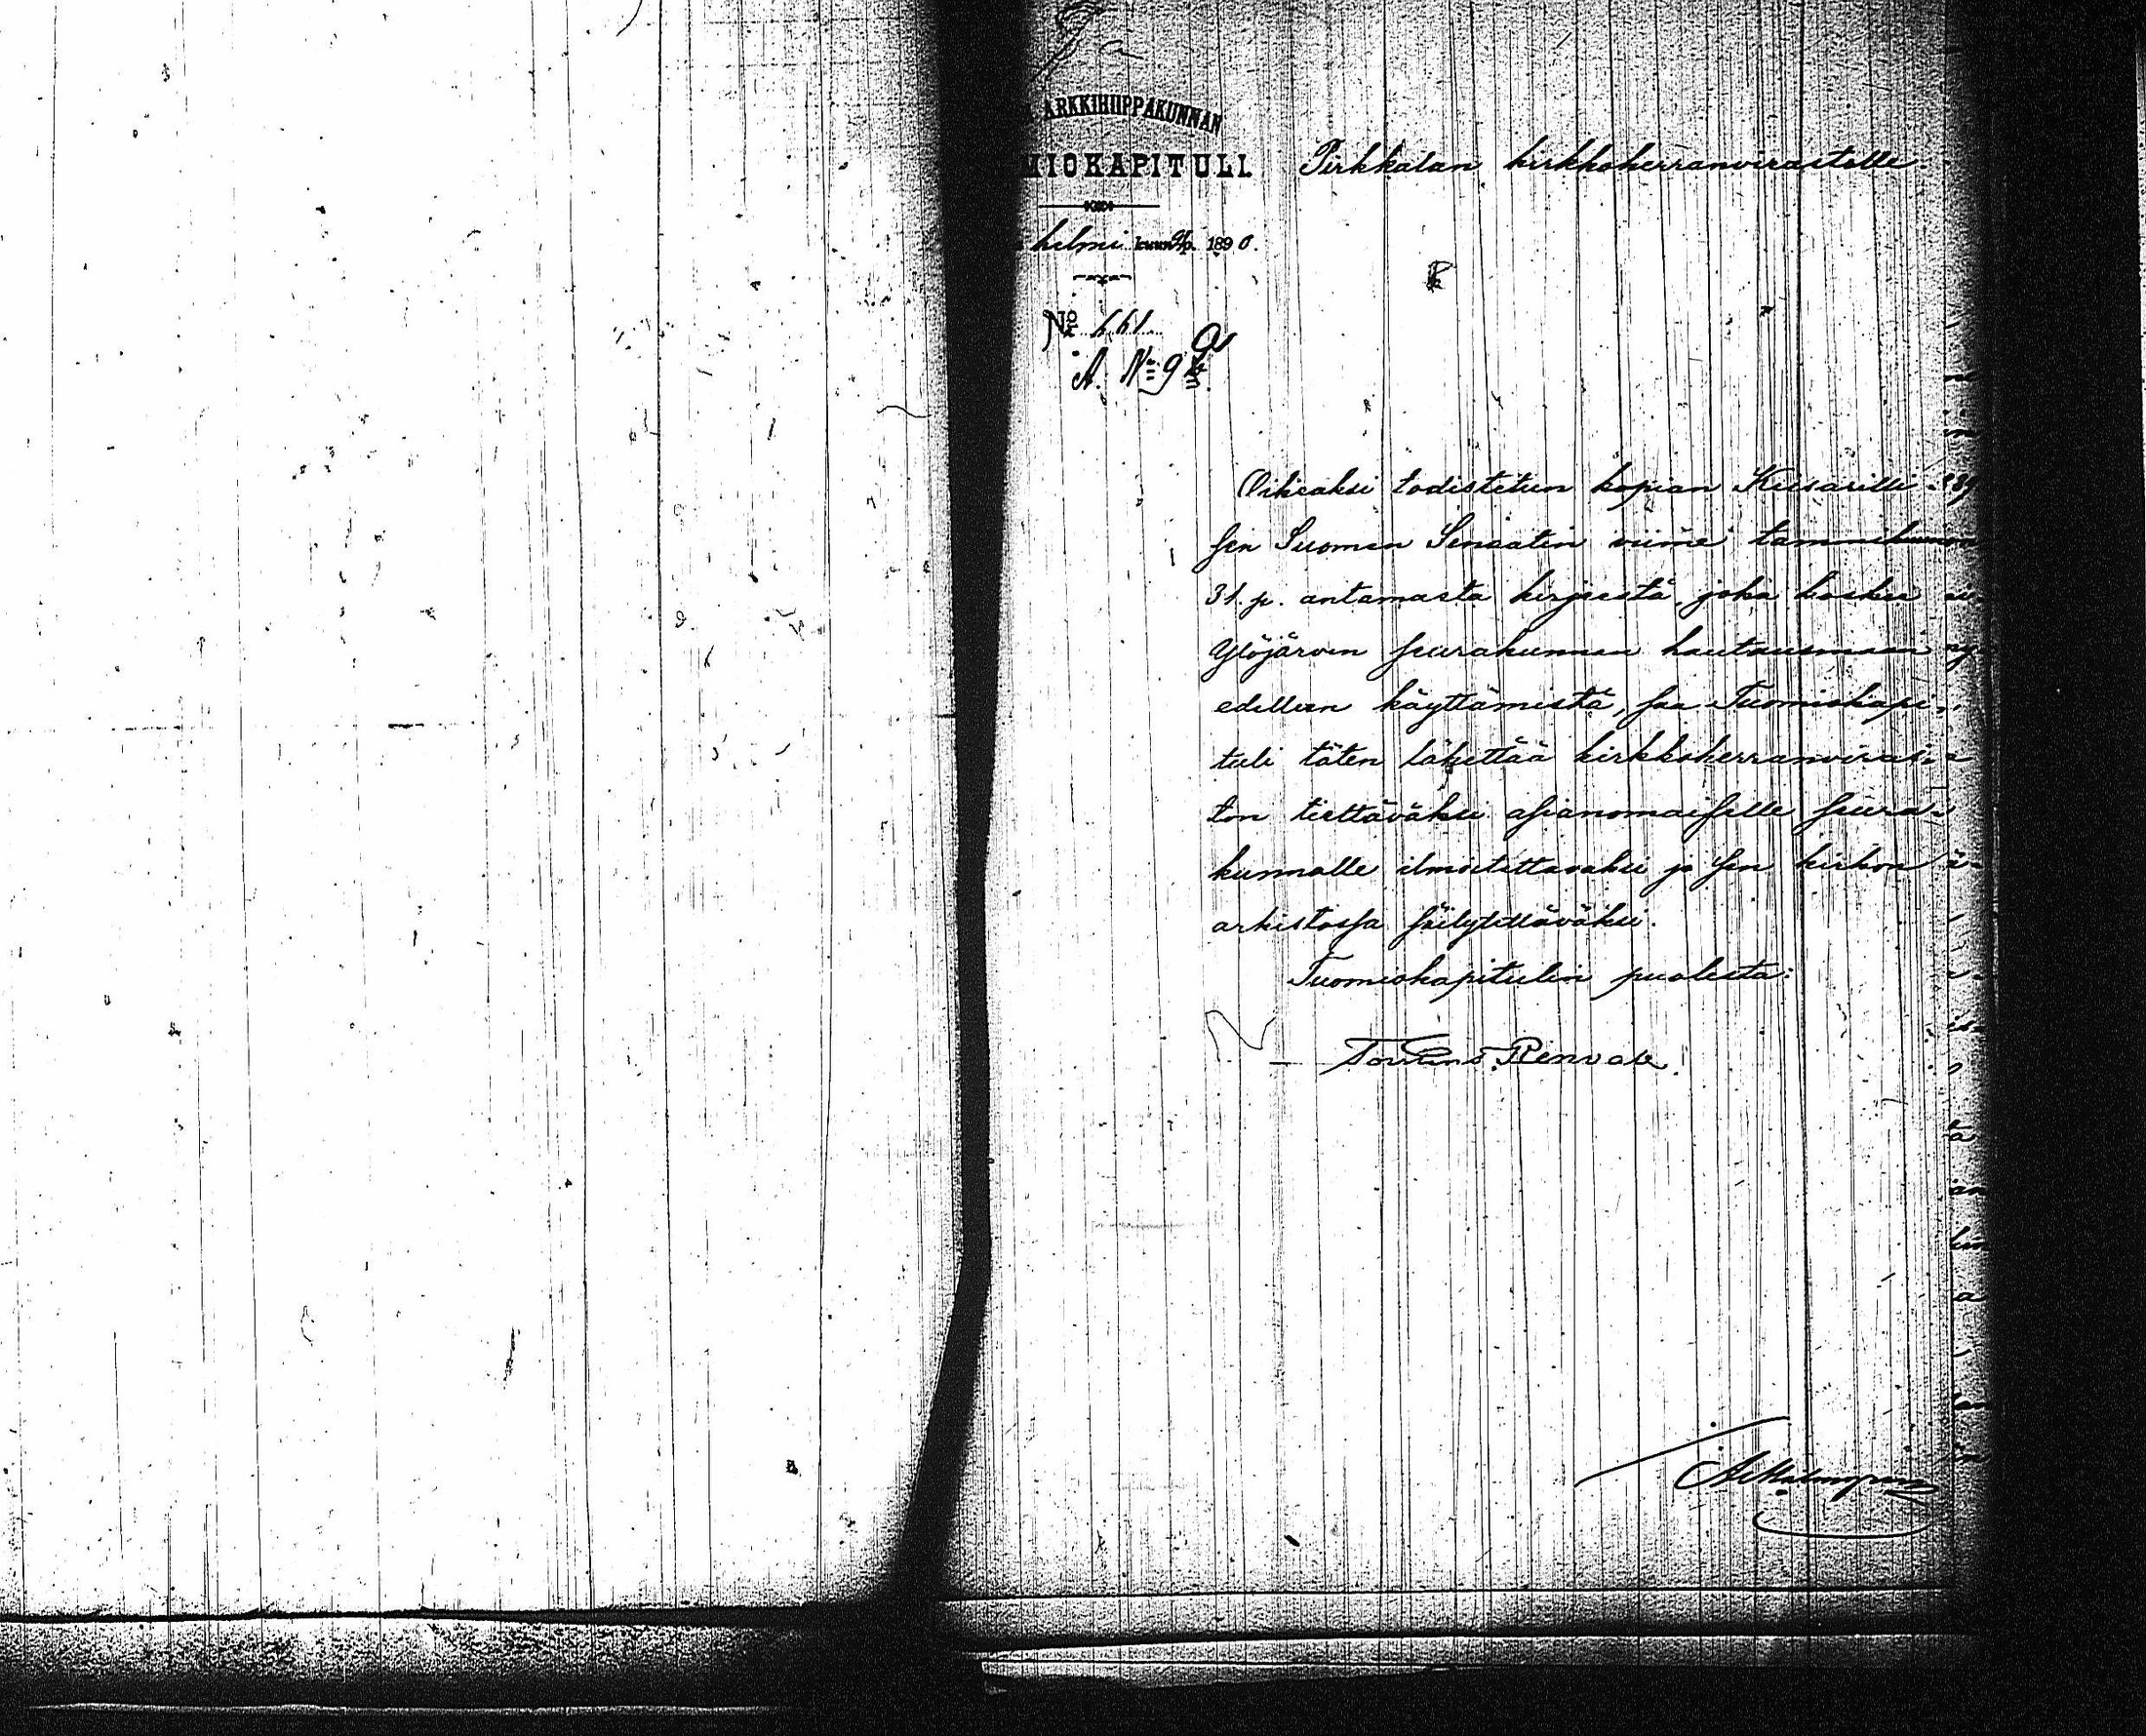 ARKKIHIIPPAKUNNAN
MIOKAPITULI.
Pirkkalan kirkkoherranvirastolle
helmi kuun p. 1890.
No 661
A. No 9
Oikeaksi todistetun kopian Keisarilli-
sen Suomen Senaatin viime tammikuun
31. p. antamasta kirjeestä, joka koskee
Ylöjärven seurakunnan hautausmaan
edelleen käyttämistä, saa Tuomiokapi-
tuli täten lähettää kirkkoherranviras-
ton tiettäväksi asianomaiselle seura-
kunnalle ilmoitettavaksi ja sen kirkon
arkistossa säilytettäväksi.
Tuomiokapitulin puolesta:
Renvall.